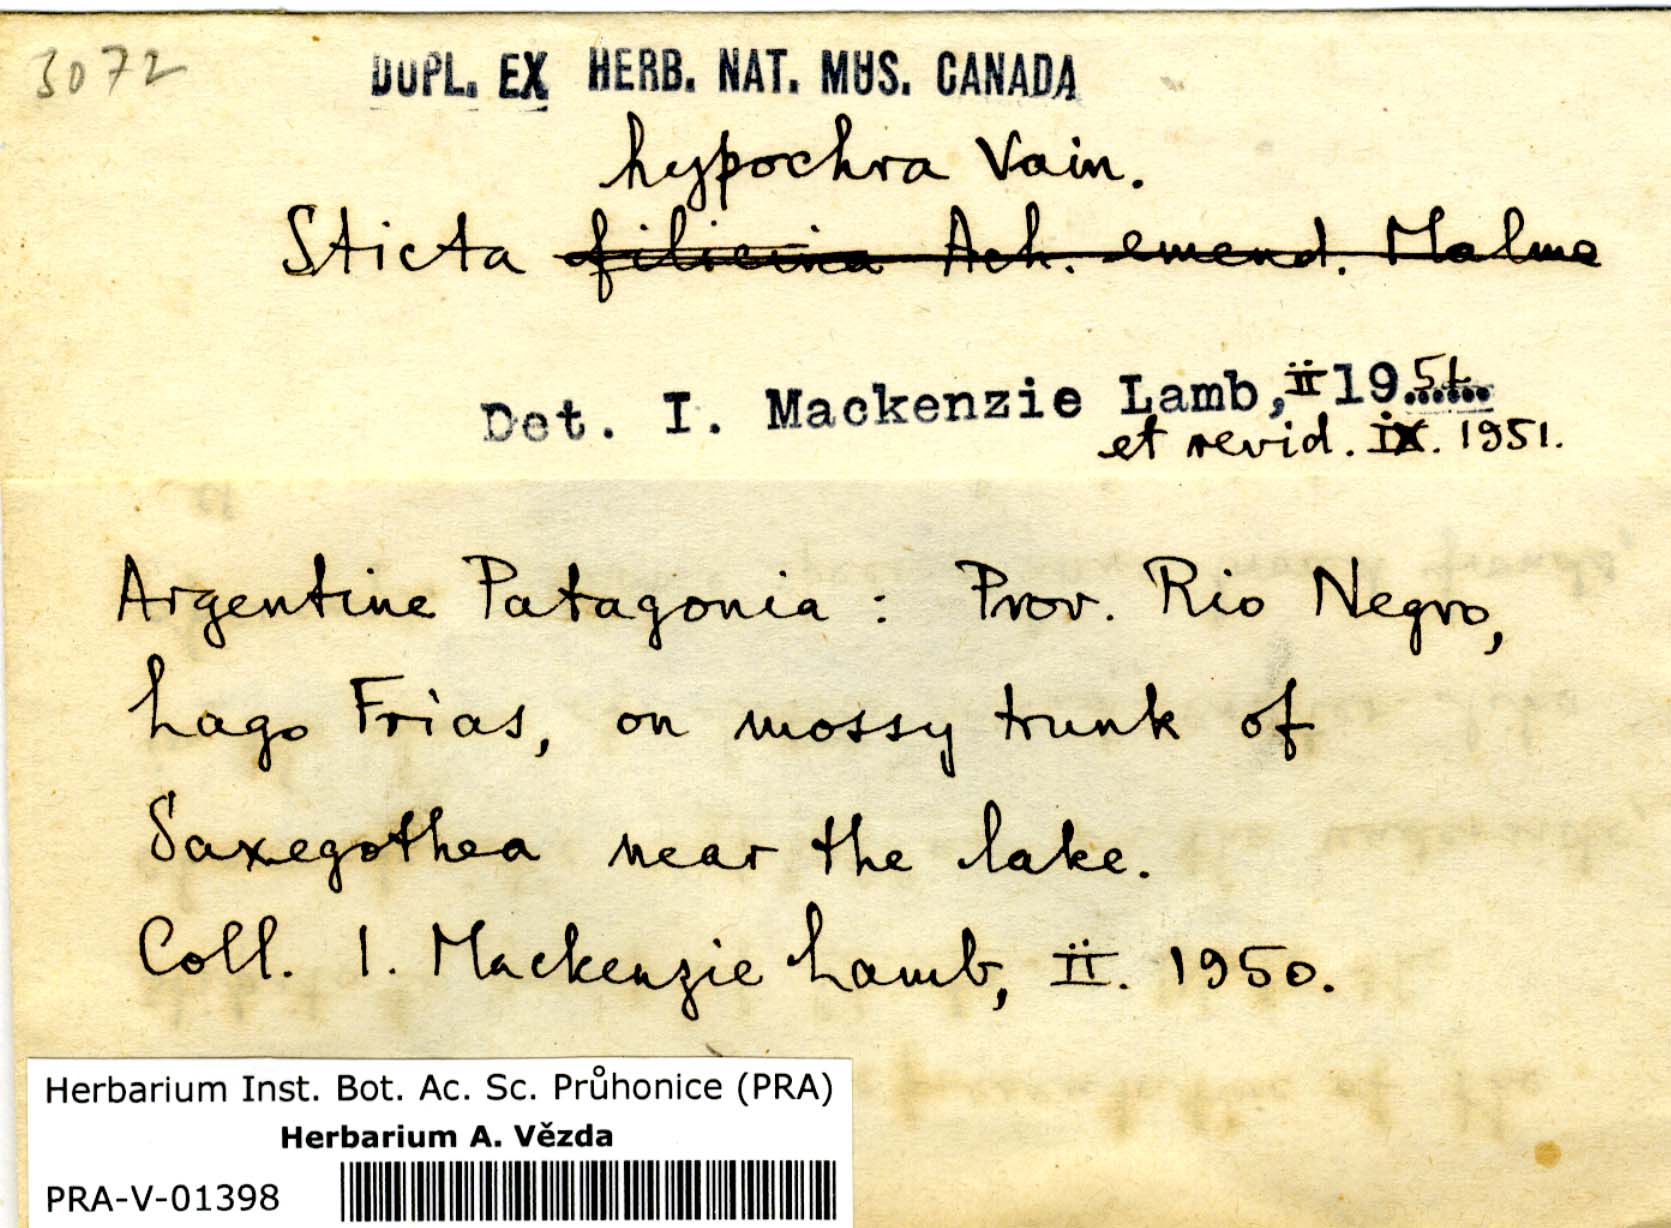 3072
DUPL. EX HERB. NAT. MUS. CANADA
hypochra Vain.
Sticta filicina Ach. emend. Malme
Det. I. Mackenzie Lamb, II 1951.
et revid. IX. 1951.
Argentine Patagonia : Prov. Rio Negro,
Lago Frias, on mossy trunk of
Saxegothea near the lake.
Coll. I. Mackenzie Lamb, II. 1950.
Herbarium Inst. Bot. Ac. Sc. Průhonice (PRA)
Herbarium A. Vězda
PRA-V-01398